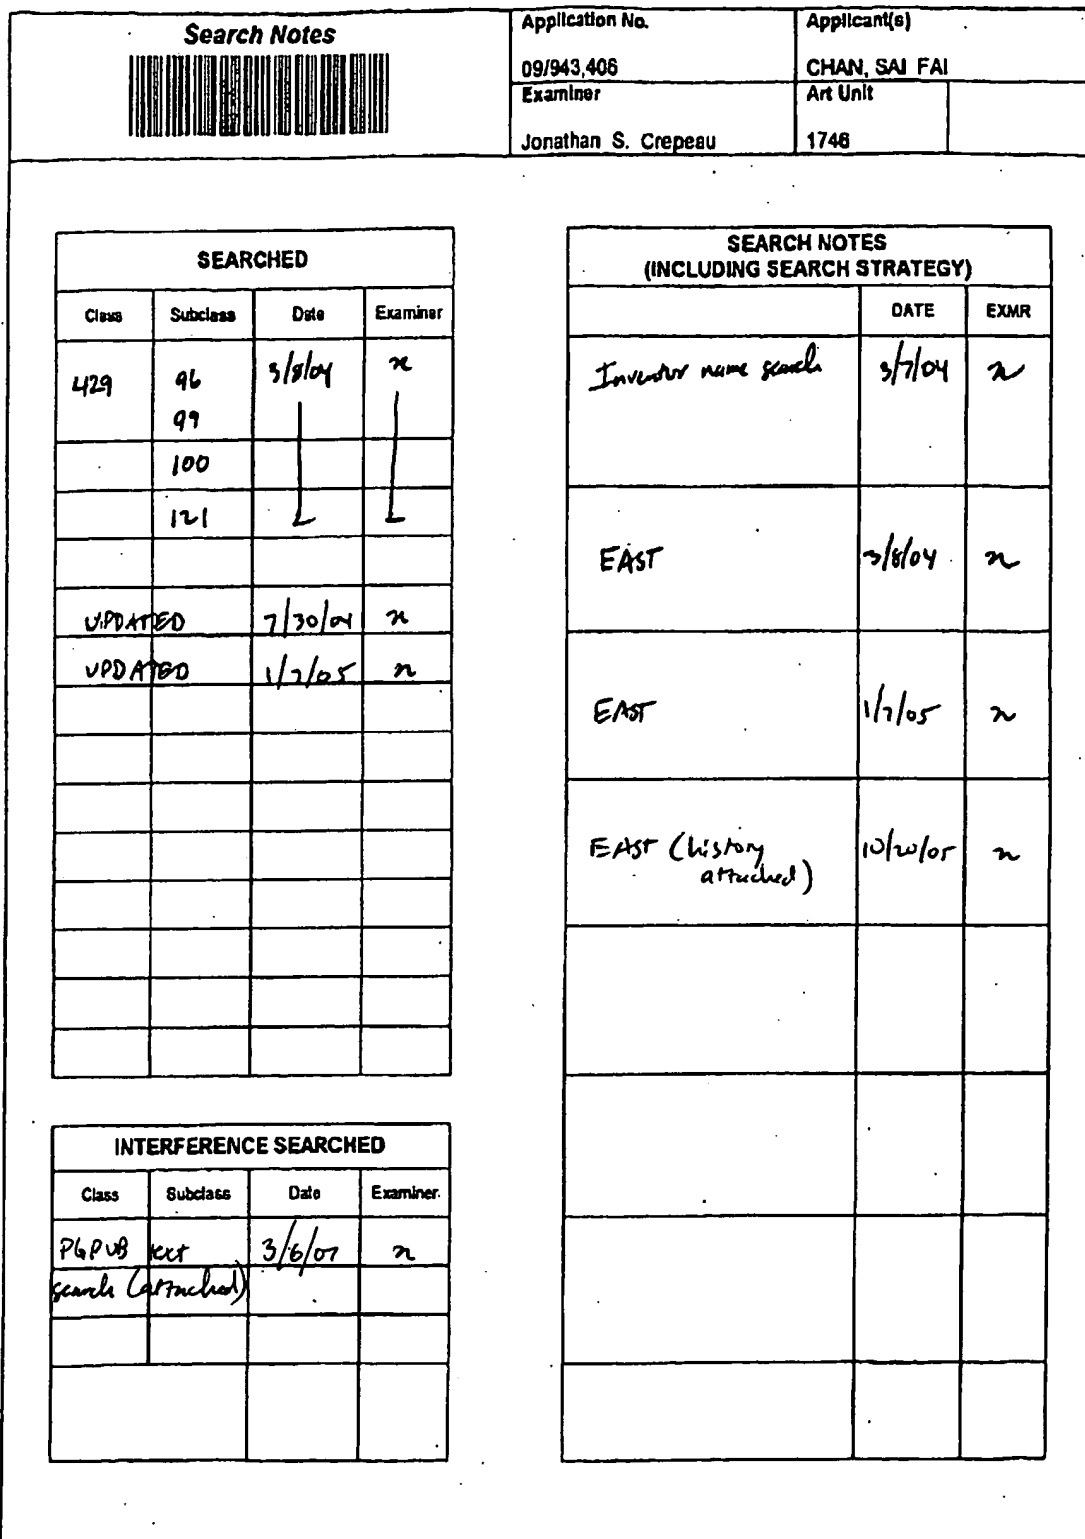 Search Notes
Application No.
Applicant(s)
09/943,406
CHAN, SAI FAI
Examiner
Art Unit
Jonathan S. Crepeau
1746
SEARCHED
Class Subclass Date Examiner
429 96 3/8/04
99
100
121
UPDATED 7/30/04
UPDATED 1/7/05
INTERFERENCE SEARCHED
Class Subclass Date Examiner
PGPUB text 3/6/07
search (attached)
SEARCH NOTES
(INCLUDING SEARCH STRATEGY)
DATE EXMR
Inventor name search 3/7/04
EAST 3/8/04
EAST 1/7/05
EAST (history 10/20/05
attached)